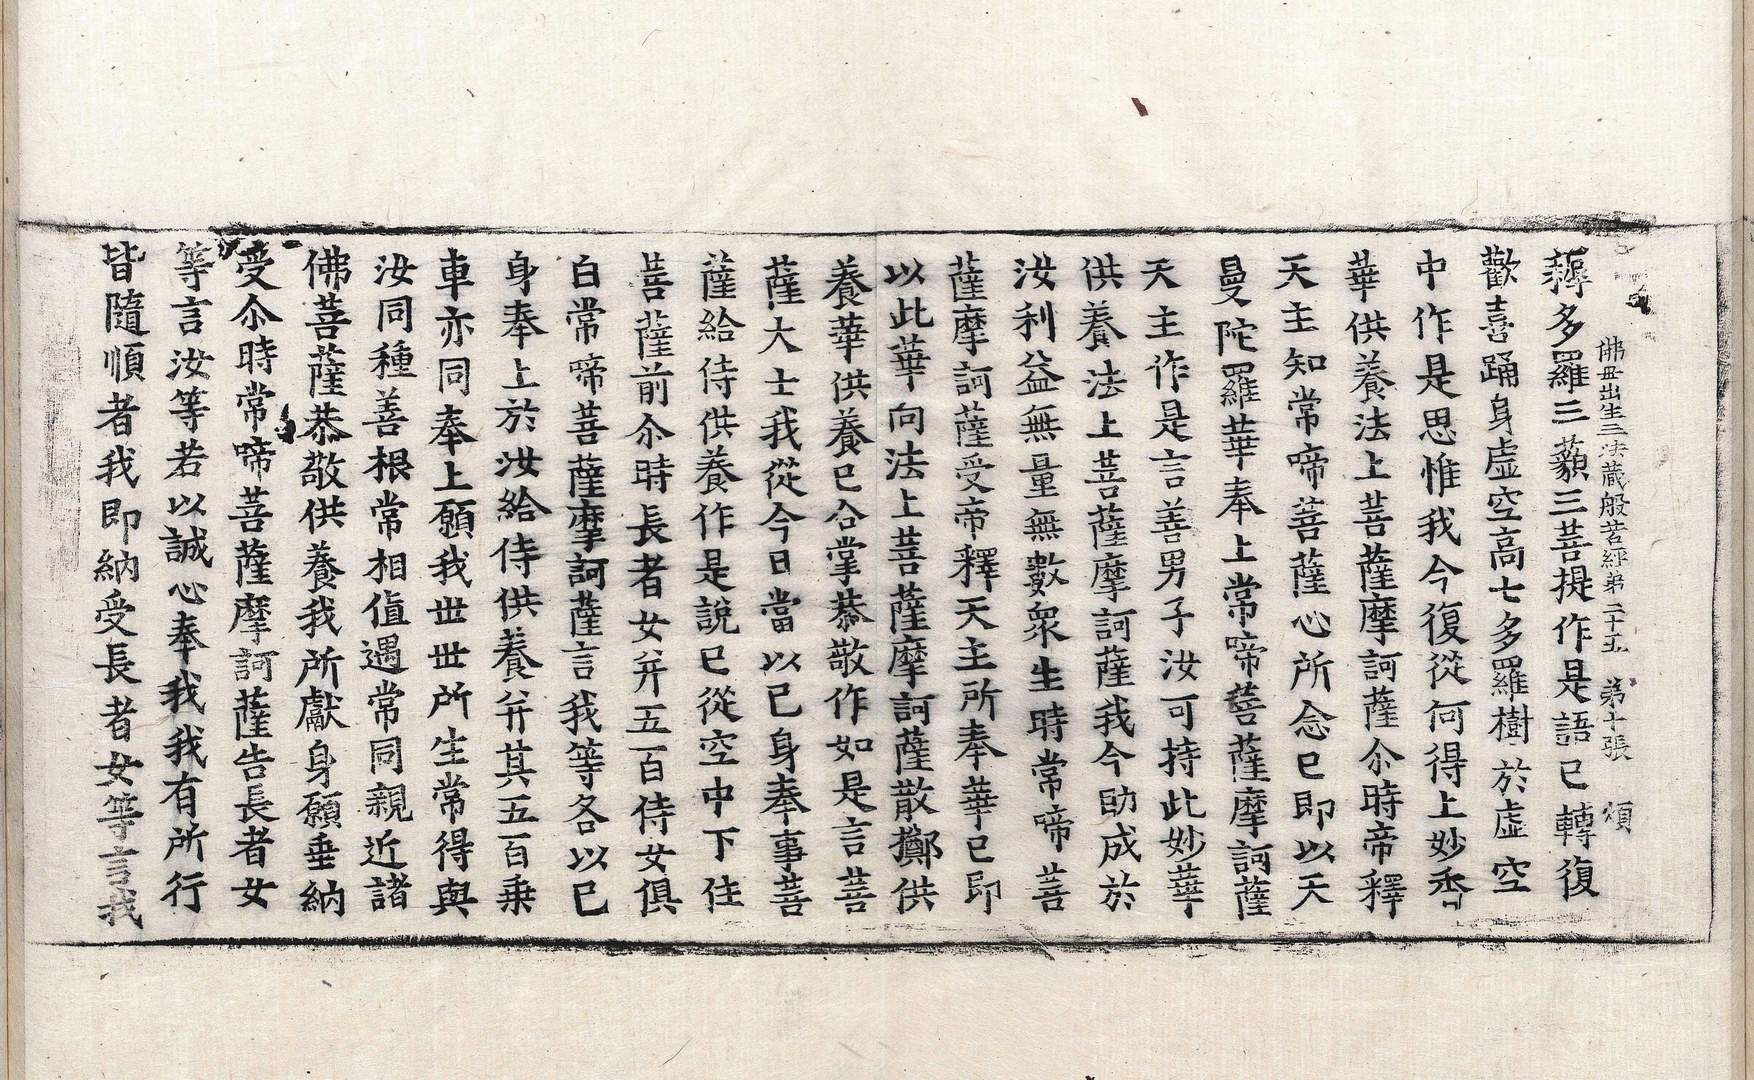 佛毋出生三法藏般若經第二十五 第十張 頌
耨多羅三藐三菩提作是語已轉復
歡喜踊身虛空高七多羅樹於虛空
中作是思惟我今復從何得上妙香
華供養法上菩薩摩訶薩尒時帝釋
天主知常啼菩薩心所念已即以天
曼陀羅華奉上常啼菩薩摩訶薩
天主作是言善男子汝可持此妙華
供養法上菩薩摩訶薩我今助成於
汝利益無量無數衆生時常啼菩
薩摩訶薩受帝釋天主所奉華已即
以此華向法上菩薩摩訶薩散擲供
養華供養已合掌恭敬作如是言菩
薩大士我從今日當以己身奉事菩
薩給侍供養作是說已從空中下住
菩薩前尒時長者女并五百侍女俱
白常啼菩薩摩訶薩言我等各以己
身奉上於汝給侍供養并其五百乗
車亦同奉上願我世世所生常得與
汝同種善根常相值遇常同親近諸
佛菩薩恭敬供養我所獻身願垂納
受尒時常啼菩薩摩訶薩告長者女
等言汝等若以誠心奉我我有所行
皆隨順者我即納受長者女等言我